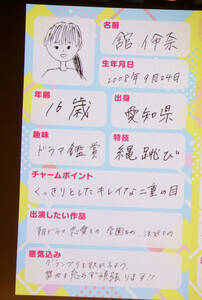 名前
舘 伶奈
生年月日
2008年9月24日
年齢
16歳
出身
愛知県
趣味
ドラマ鑑賞
特技
縄跳び
チャームポイント
くっきりとしたキレイな二重の目
出演したい作品
朝ドラ、恋愛もの、学園もの、
意気込み
グランプリを取れるよう、
頑張ります!!